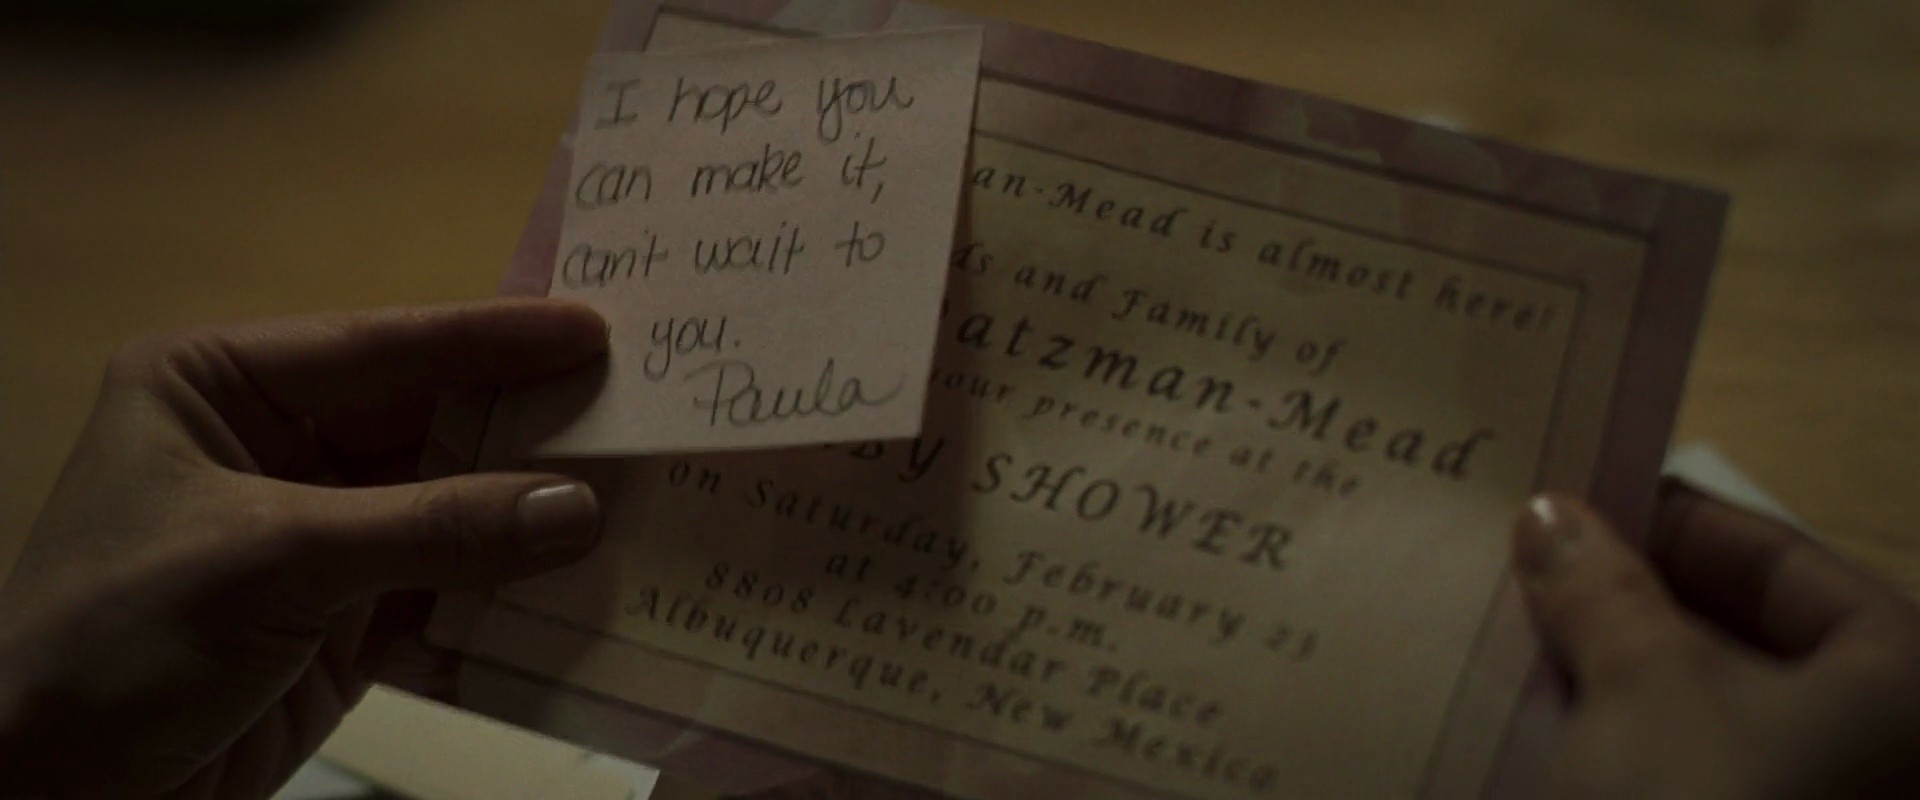 I hope you
can make it,
can't wait to
you.
Paula
an-Mead is almost here!
ds and Family of
atzman-Mead
your presence at the
BY SHOWER
on Saturday, February 23
at 4:00 p.m.
8808 Lavendar Place
Albuquerque, New Mexico